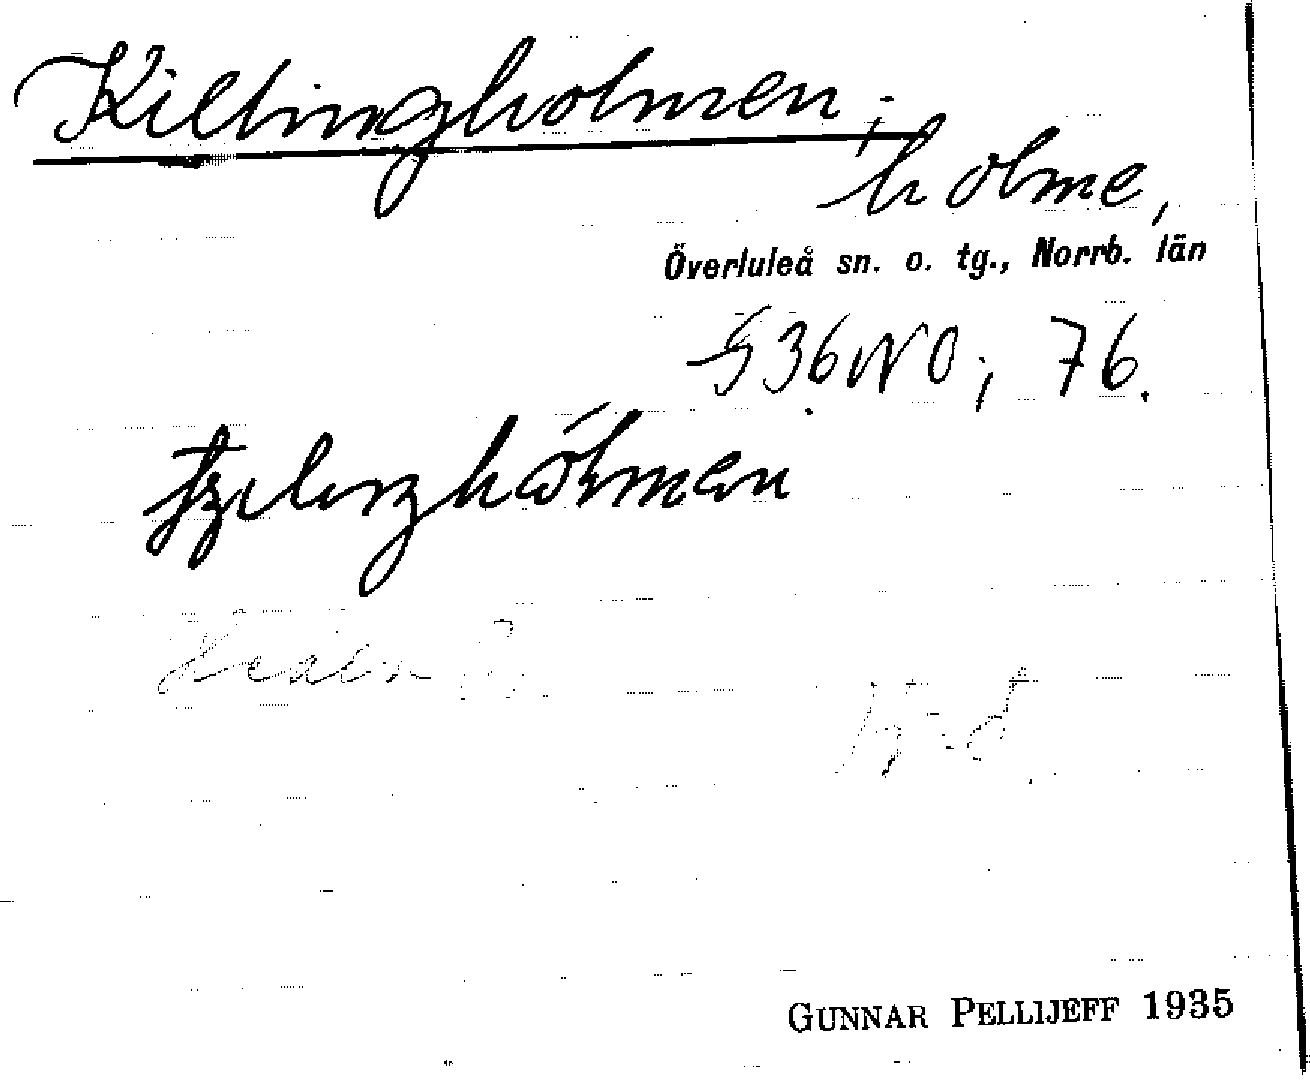 Killingholmen;
holme,
Överluleå sn. o. tg., Norrb. län
S 36 NO; 76.
Heden
GUNNAR PELLIJEFF 1935